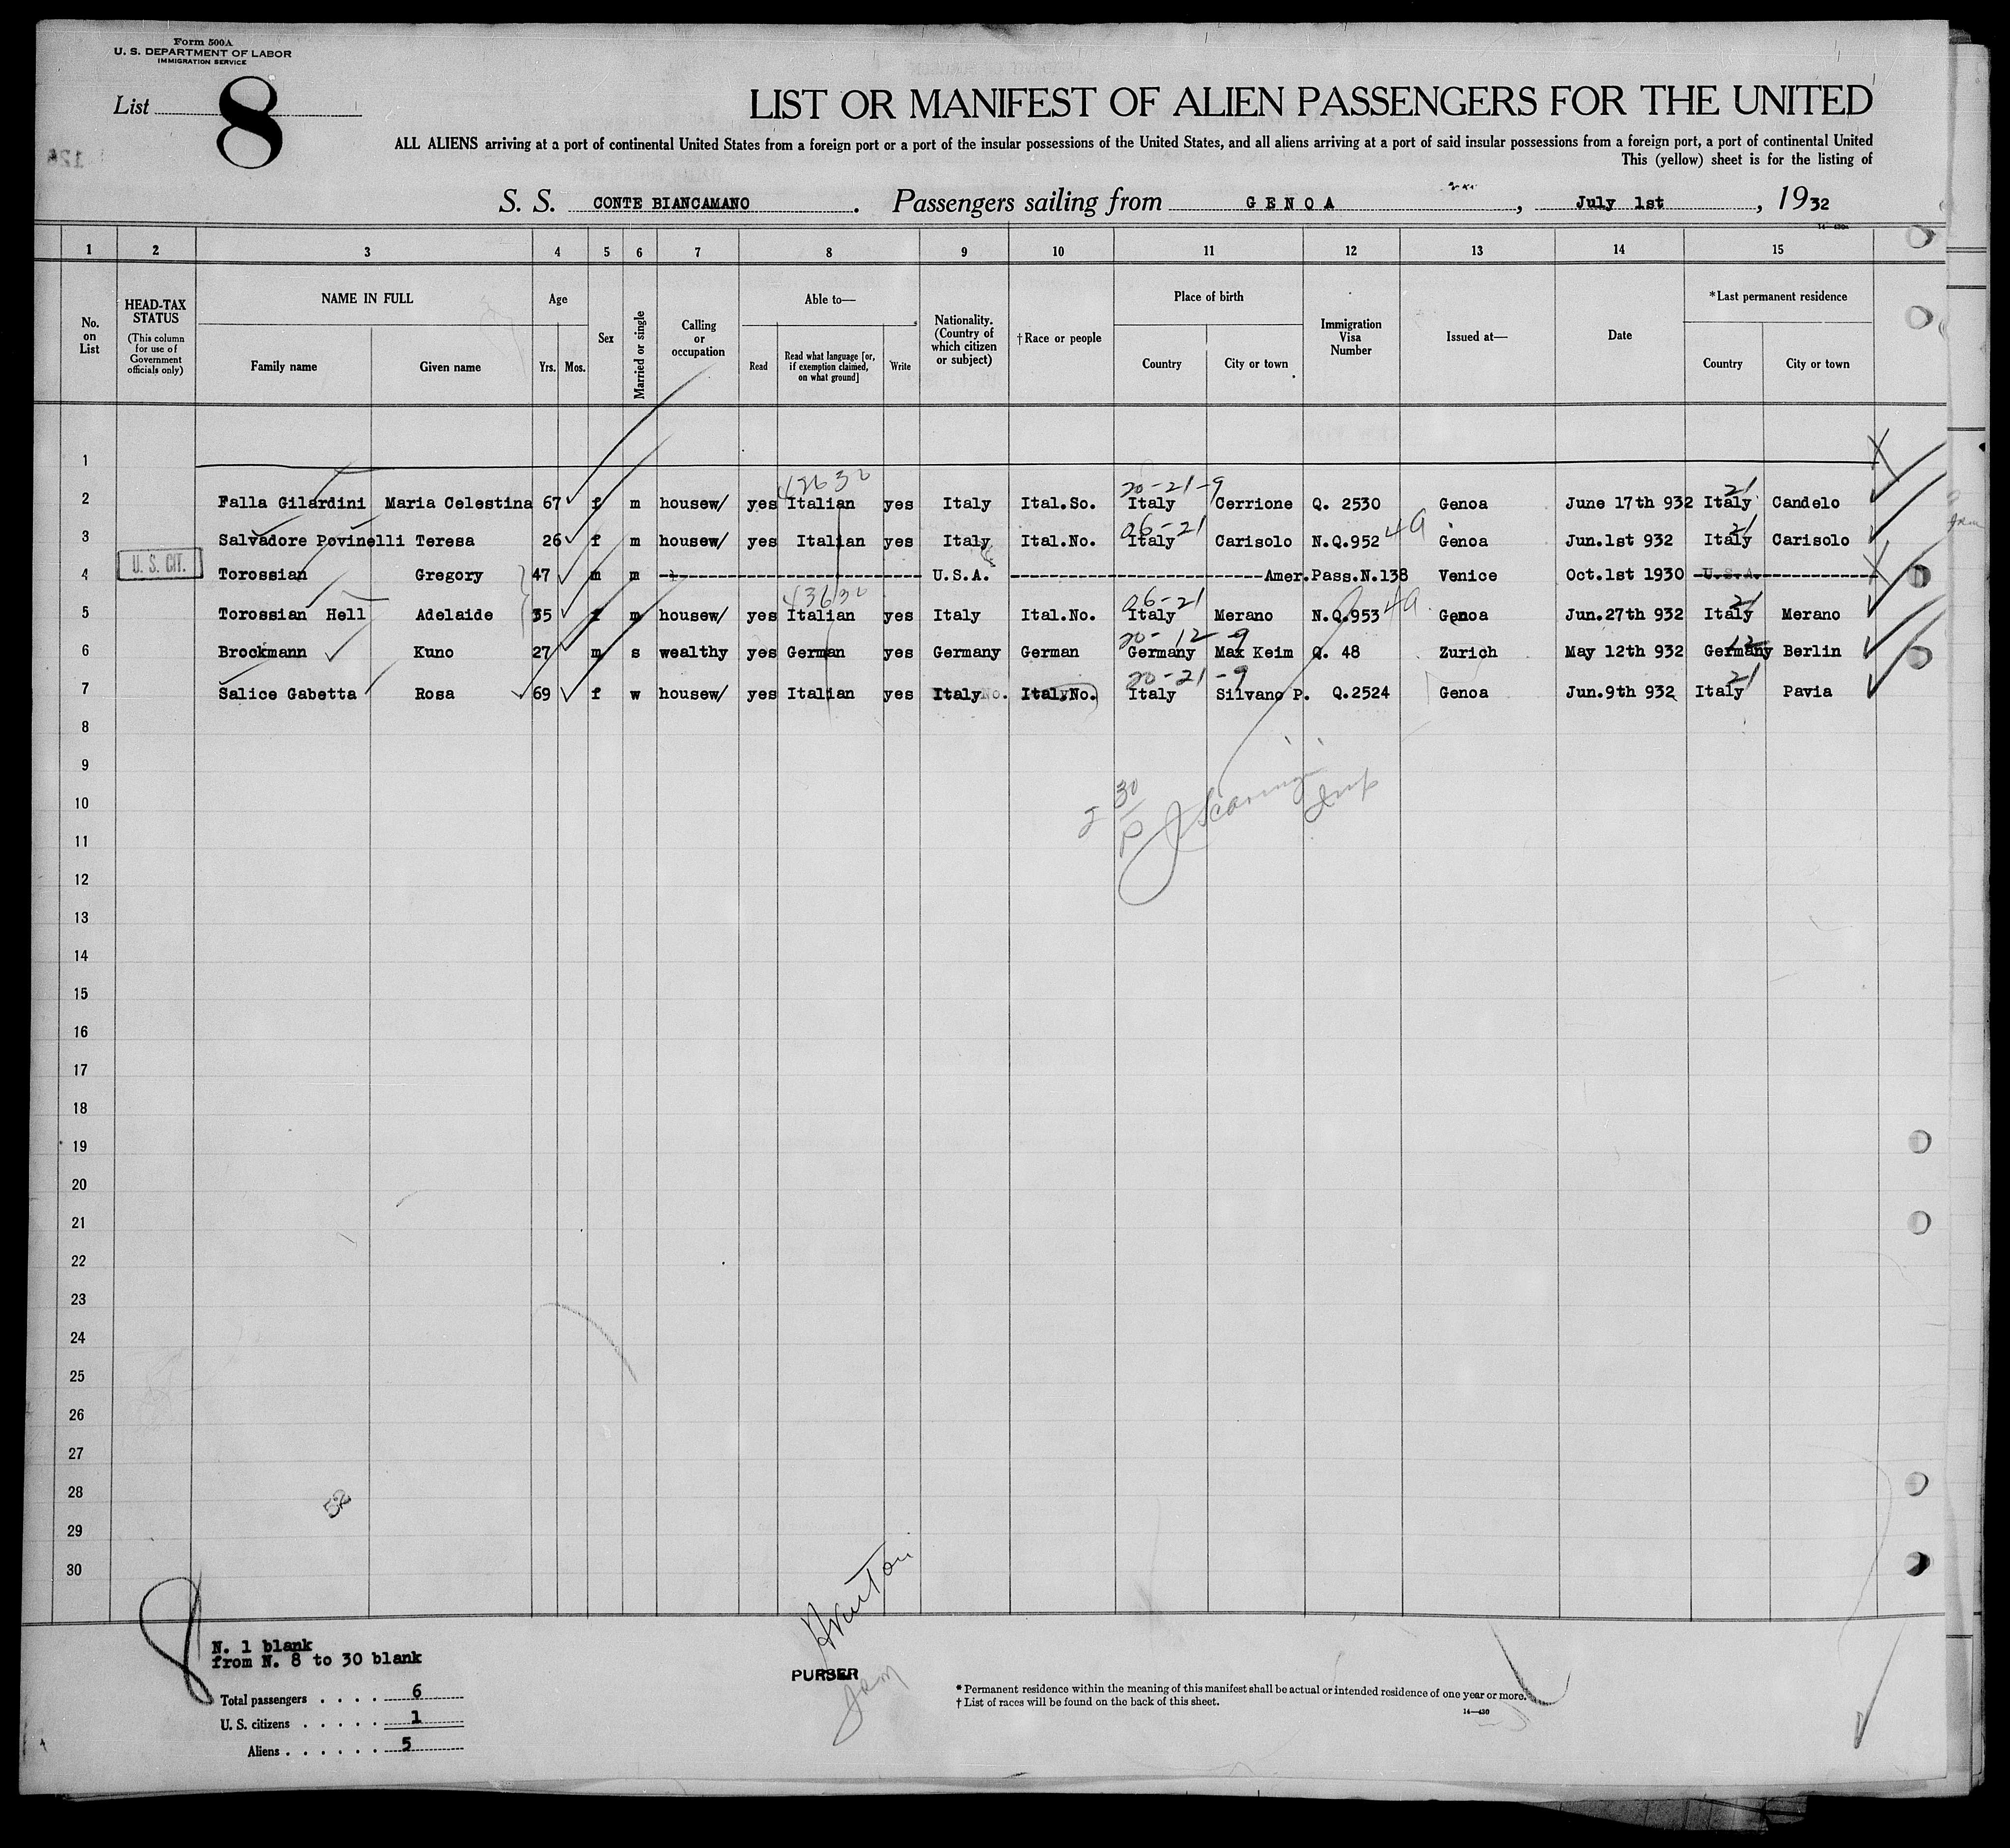 Form 500A
U. S. DEPARTMENT OF LABOR
IMMIGRATION SERVICE
List 8
LIST OR MANIFEST OF ALIEN PASSENGERS FOR THE UNITED
ALL ALIENS arriving at a port of continental United States from a foreign port or a port of the insular possessions of the United States, and all aliens arriving at a port of said insular possessions from a foreign port, a port of continental United
This (yellow) sheet is for the listing of
S. S. CONTE BIANCAMANO. Passengers sailing from GENOA, July 1st, 1932
1 2 3 4 5 6 7 8 9 10 11 12 13 14 15
No. on List
HEAD-TAX STATUS
(This column for use of Government officials only)
NAME IN FULL
Family name
Given name
Age
Yrs. Mos.
Sex
Married or single
Calling or occupation
Able to—
Read
Read what language [or, if exemption claimed, on what ground]
Write
Nationality. (Country of which citizen or subject)
†Race or people
Place of birth
Country
City or town
Immigration Visa Number
Issued at—
Date
*Last permanent residence
Country
City or town
1
43630 20-21-9 21
2 Falla Gilardini Maria Celestina 67 f m housew/ yes Italian yes Italy Ital.So. Italy Cerrione Q. 2530 Genoa June 17th 932 Italy Candelo
06-21 4a 21
3 Salvadore Povinelli Teresa 26 f m housew/ yes Italian yes Italy Ital.No. Italy Carisolo N.Q.952 Genoa Jun.1st 932 Italy Carisolo
4 U. S. CIT. Torossian Gregory 47 m m U.S.A. Amer.Pass.N.138 Venice Oct.1st 1930 U.S.A.
43630 06-21 4a 21
5 Torossian Hell Adelaide 35 f m housew/ yes Italian yes Italy Ital.No. Italy Merano N.Q.953 Genoa Jun.27th 932 Italy Merano
20-12-9 12
6 Brockmann Kuno 27 m s wealthy yes German yes Germany German Germany Max Keim Q. 48 Zurich May 12th 932 Germany Berlin
20-21-9 21
7 Salice Gabetta Rosa 69 f w housew/ yes Italian yes Italy Ital.No. Italy Silvano P. Q.2524 Genoa Jun.9th 932 Italy Pavia
8
9
10
11
12
13
14
15
16
17
18
19
20
21
22
23
24
25
26
27
28
29
30
8
N. 1 blank
from N. 8 to 30 blank
Total passengers . . . . 6
U. S. citizens . . . . . 1
Aliens . . . . . . 5
PURSER
* Permanent residence within the meaning of this manifest shall be actual or intended residence of one year or more.
† List of races will be found on the back of this sheet.
14—430